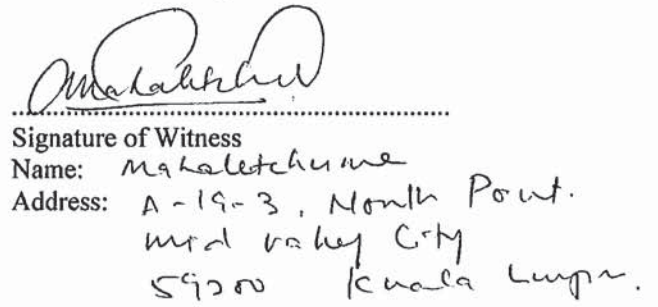 Signature of Witness
Name: Mahaletchume
Address: A-19-3, North Point.
Mid Valley City
59200 Kuala Lumpur.